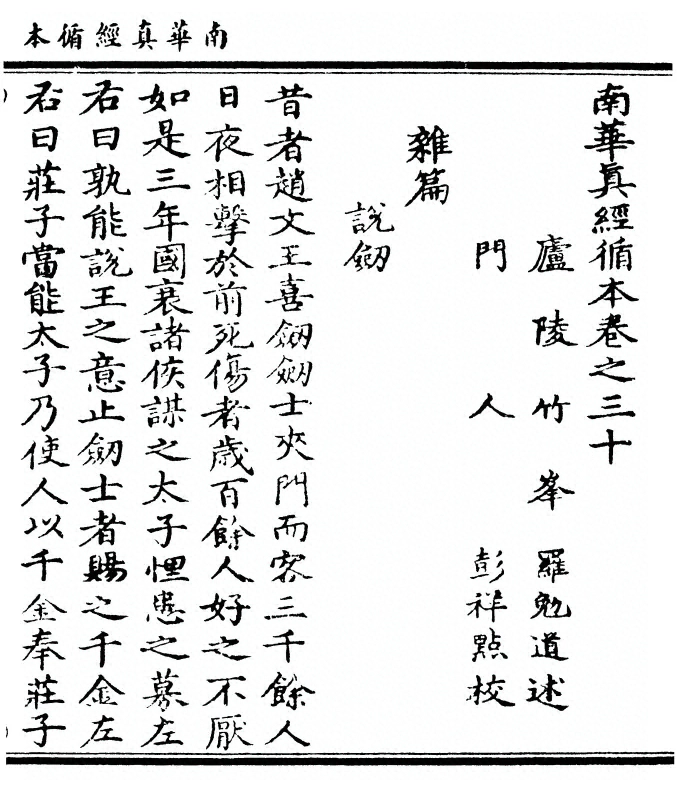 南華真經循本
南華眞經循本卷之三十
廬陵竹峯羅勉道述
門人彭祥點校
雜篇
說劒
昔者趙文王喜劒劒士夾門而客三千餘人
日夜相擊於前死傷者歲百餘人好之不厭
如是三年國衰諸侯謀之太子悝患之募左
右曰孰能說王之意止劒士者賜之千金左
右曰莊子當能太子乃使人以千金奉莊子